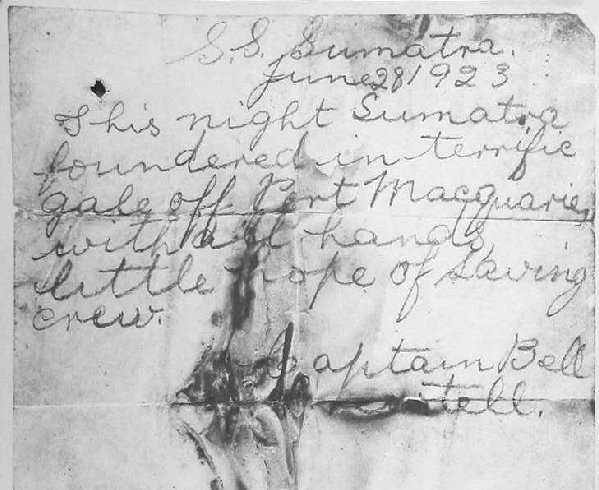 S.S. Sumatra.
June 28 1923
This night Sumatra
foundered in terrific
gale off Port Macquarie,
with all hands,
little hope of saving
crew.
Captain Bell
tell.